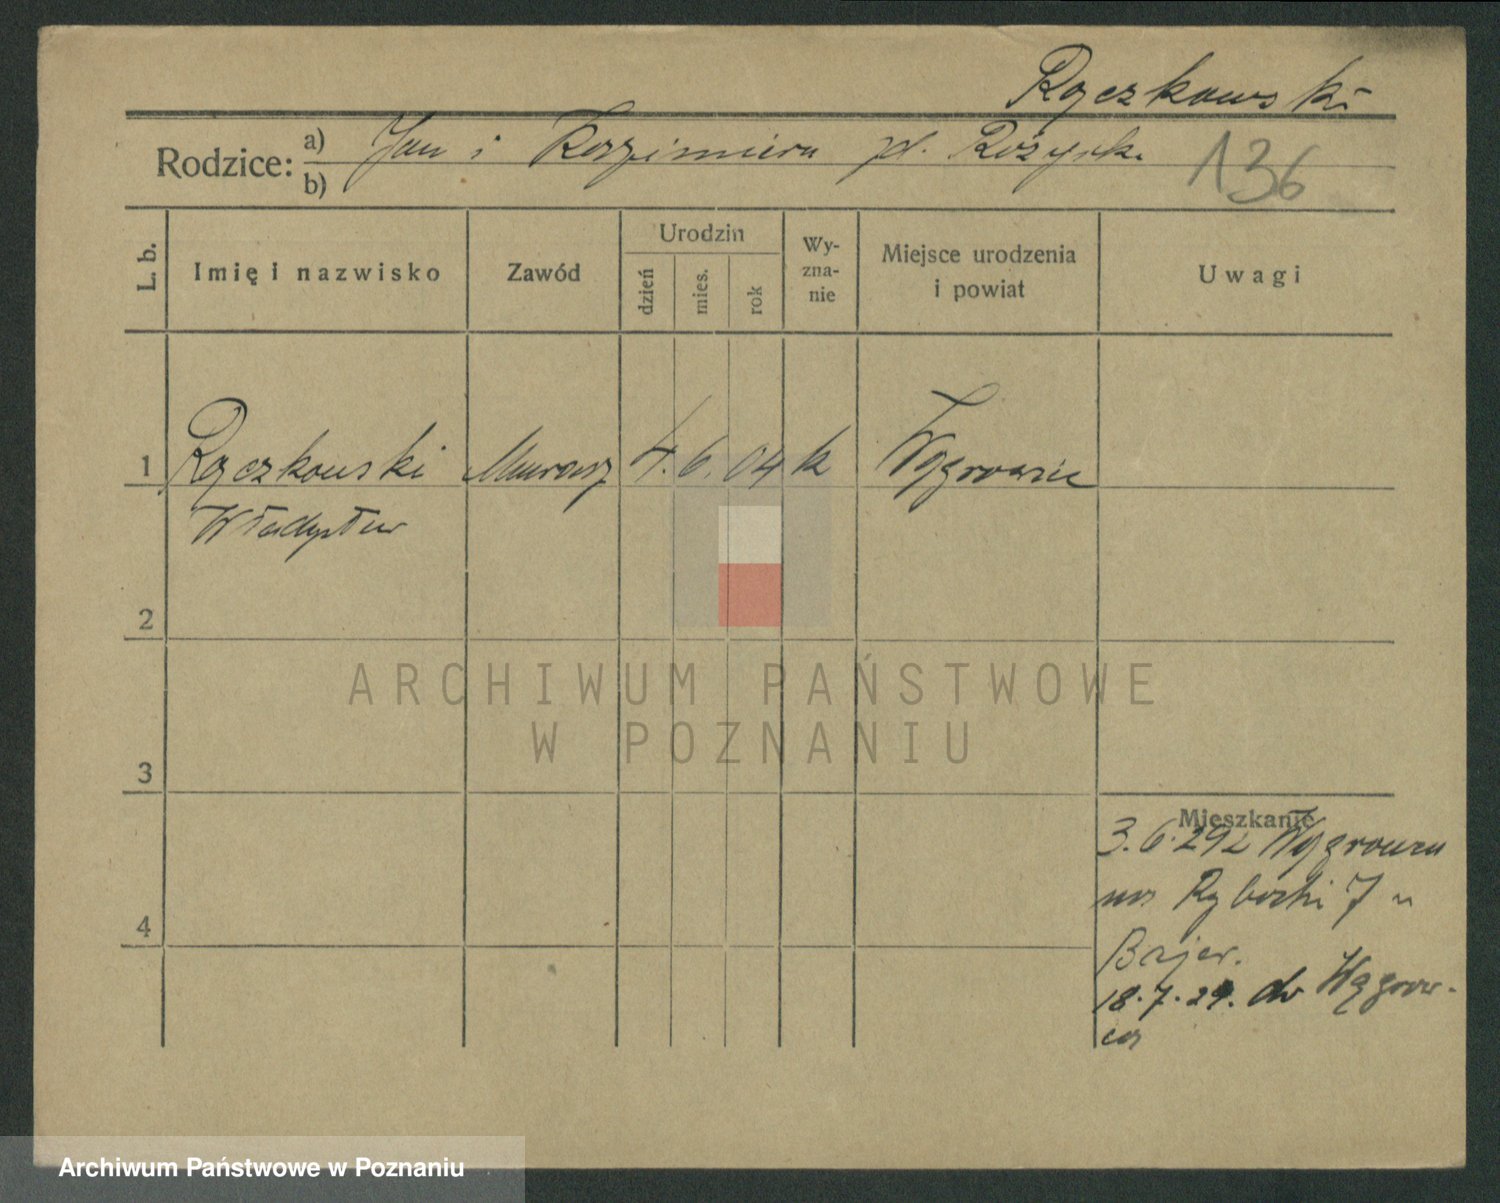 Rączkowski
Rodzice: a) Jan i Kazimiera zd. Różycka
b)
136
L. b.
Imię i nazwisko
Zawód
Urodzin
dzień
mies.
rok
Wy-
zna-
nie
Miejsce urodzenia
i powiat
Uwagi
1 Rączkowski Murarz 4. 6. 04 k Wągrowiec
Władysław
2
3
4
Mieszkanie
3. 6. 29 z Wągrowca
na Rybaki 7 u
Bajer.
18. 7. 29. do Wągrow-
ca
ARCHIWUM PAŃSTWOWE
W POZNANIU
Archiwum Państwowe w Poznaniu